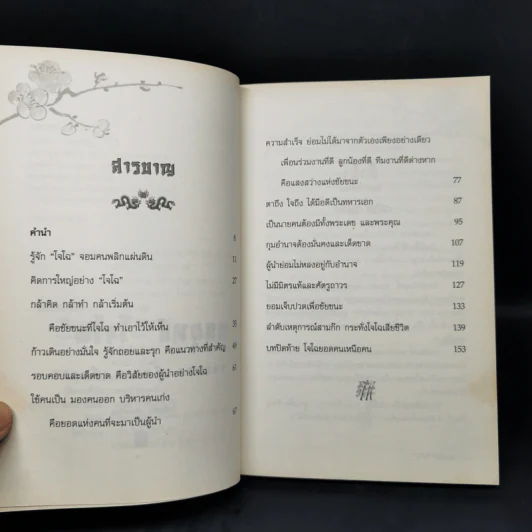 สารบาญ
คำนำ 6
รู้จัก "โจโฉ" จอมคนพลิกแผ่นดิน 11
คิดการใหญ่อย่าง "โจโฉ" 27
กล้าคิด กล้าทำ กล้าเริ่มต้น
คือชัยชนะที่โจโฉ ทำเอาไว้ให้เห็น 39
ก้าวเดินอย่างมั่นใจ รู้จักถอยและรุก คือแนวทางที่สำคัญ 49
รอบคอบและเด็ดขาด คือวิสัยของผู้นำอย่างโจโฉ 61
ใช้คนเป็น มองคนออก บริหารคนเก่ง
คือยอดแห่งคนที่จะมาเป็นผู้นำ 67
ความสำเร็จ ย่อมไม่ได้มาจากตัวเองเพียงอย่างเดียว
เพื่อนร่วมงานที่ดี ลูกน้องที่ดี ทีมงานที่ดีต่างหาก
คือแสงสว่างแห่งชัยชนะ 77
ตาถึง ใจถึง ได้มือดีเป็นทหารเอก 87
เป็นนายคนต้องมีทั้งพระเดช และพระคุณ 95
กุมอำนาจต้องมั่นคงและเด็ดขาด 107
ผู้นำย่อมไม่หลงอยู่กับอำนาจ 119
ไม่มีมิตรแท้และศัตรูถาวร 127
ยอมเจ็บปวดเพื่อชัยชนะ 133
ลำดับเหตุการณ์สามก๊ก กระทั่งโจโฉเสียชีวิต 139
บทปิดท้าย โจโฉยอดคนเหนือคน 153